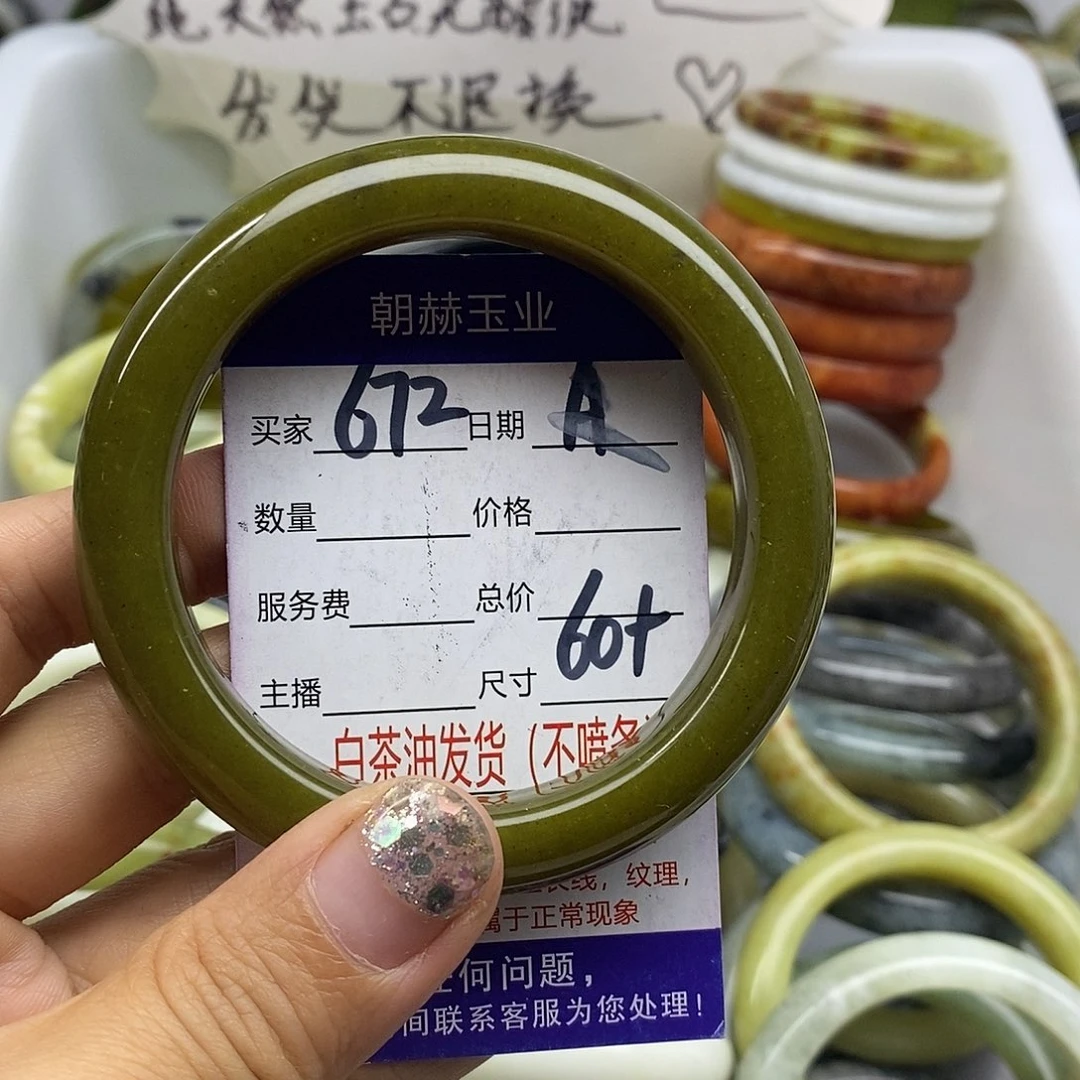 纯天然玉石无酸洗
发货不退换
朝赫玉业
买家 672 日期 A
数量 价格
服务费 总价
主播 尺寸 60+
白茶油发货(不喷
线,纹理,
属于正常现象
何问题,
间联系客服为您处理!